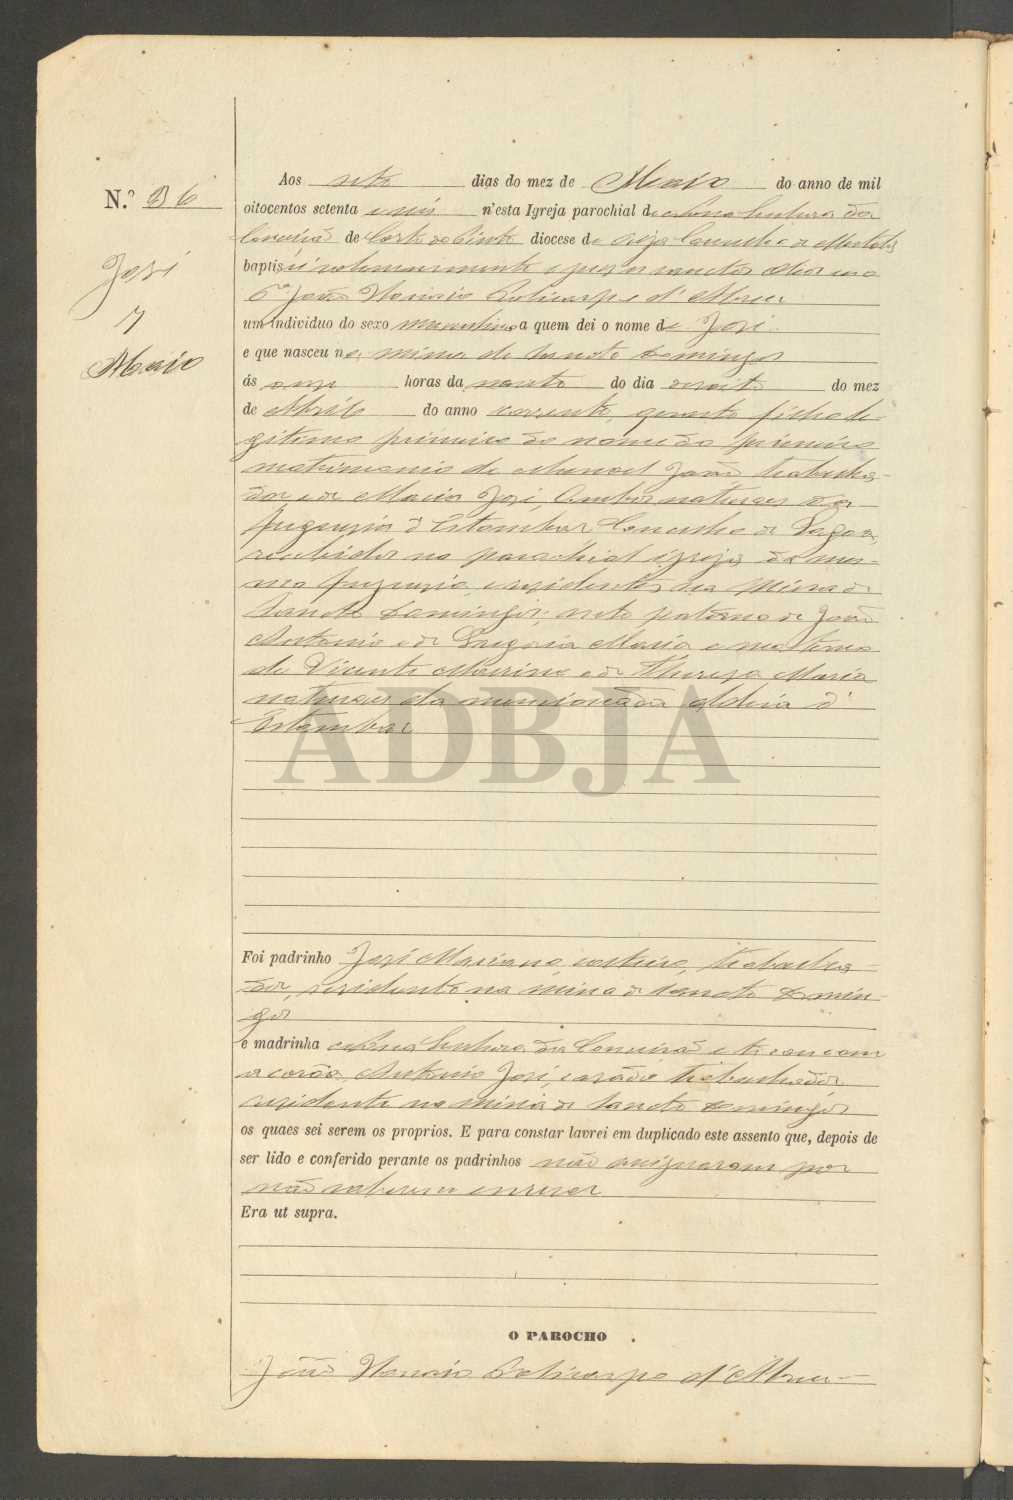 N.º 36
José
7
Maio
Aos sete dias do mez de Maio do anno de mil
oitocentos setenta e seis n'esta Igreja parochial de Nossa Senhora da
Conceição de Corte do Pinto diocese de Beja Concelho de Mertola
baptisei solemnemente e puz os sanctos Oleos eu o
P.e João Ignacio Policarpo d'Abreu
um individuo do sexo masculino a quem dei o nome de José
e que nasceu na mina de Sancto Domingos
ás onze horas da noute do dia desoito do mez
de Abril do anno corrente, quarto filho le-
gitimo primeiro do nome do primeiro
matrimonio de Manoel João trabalha-
dor e de Maria José, ambos naturaes da
freguezia d'Estombar Concelho de Lagoa,
recebidos na parochial igreja da mes-
ma freguezia, e residentes na Mina de
Sancto Domingos; neto paterno de João
Antonio e de Gregoria Maria e materno
de Vicente e de Thereza Maria
naturaes da mencionada aldeia d'
Estombar
ADBJA
Foi padrinho José Mariano, solteiro, trabalha-
dor, residente na mina de Sancto Domin-
gos
e madrinha Nossa Senhora da Conceição e tocou com
a corôa, Antonio José, casado trabalhador
residente na mina de Sancto Domingos
os quaes sei serem os proprios. E para constar lavrei em duplicado este assento que, depois de
ser lido e conferido perante os padrinhos não assignaram por
não saberem escrever
Era ut supra.
O PAROCHO
João Ignacio Policarpo d'Abreu